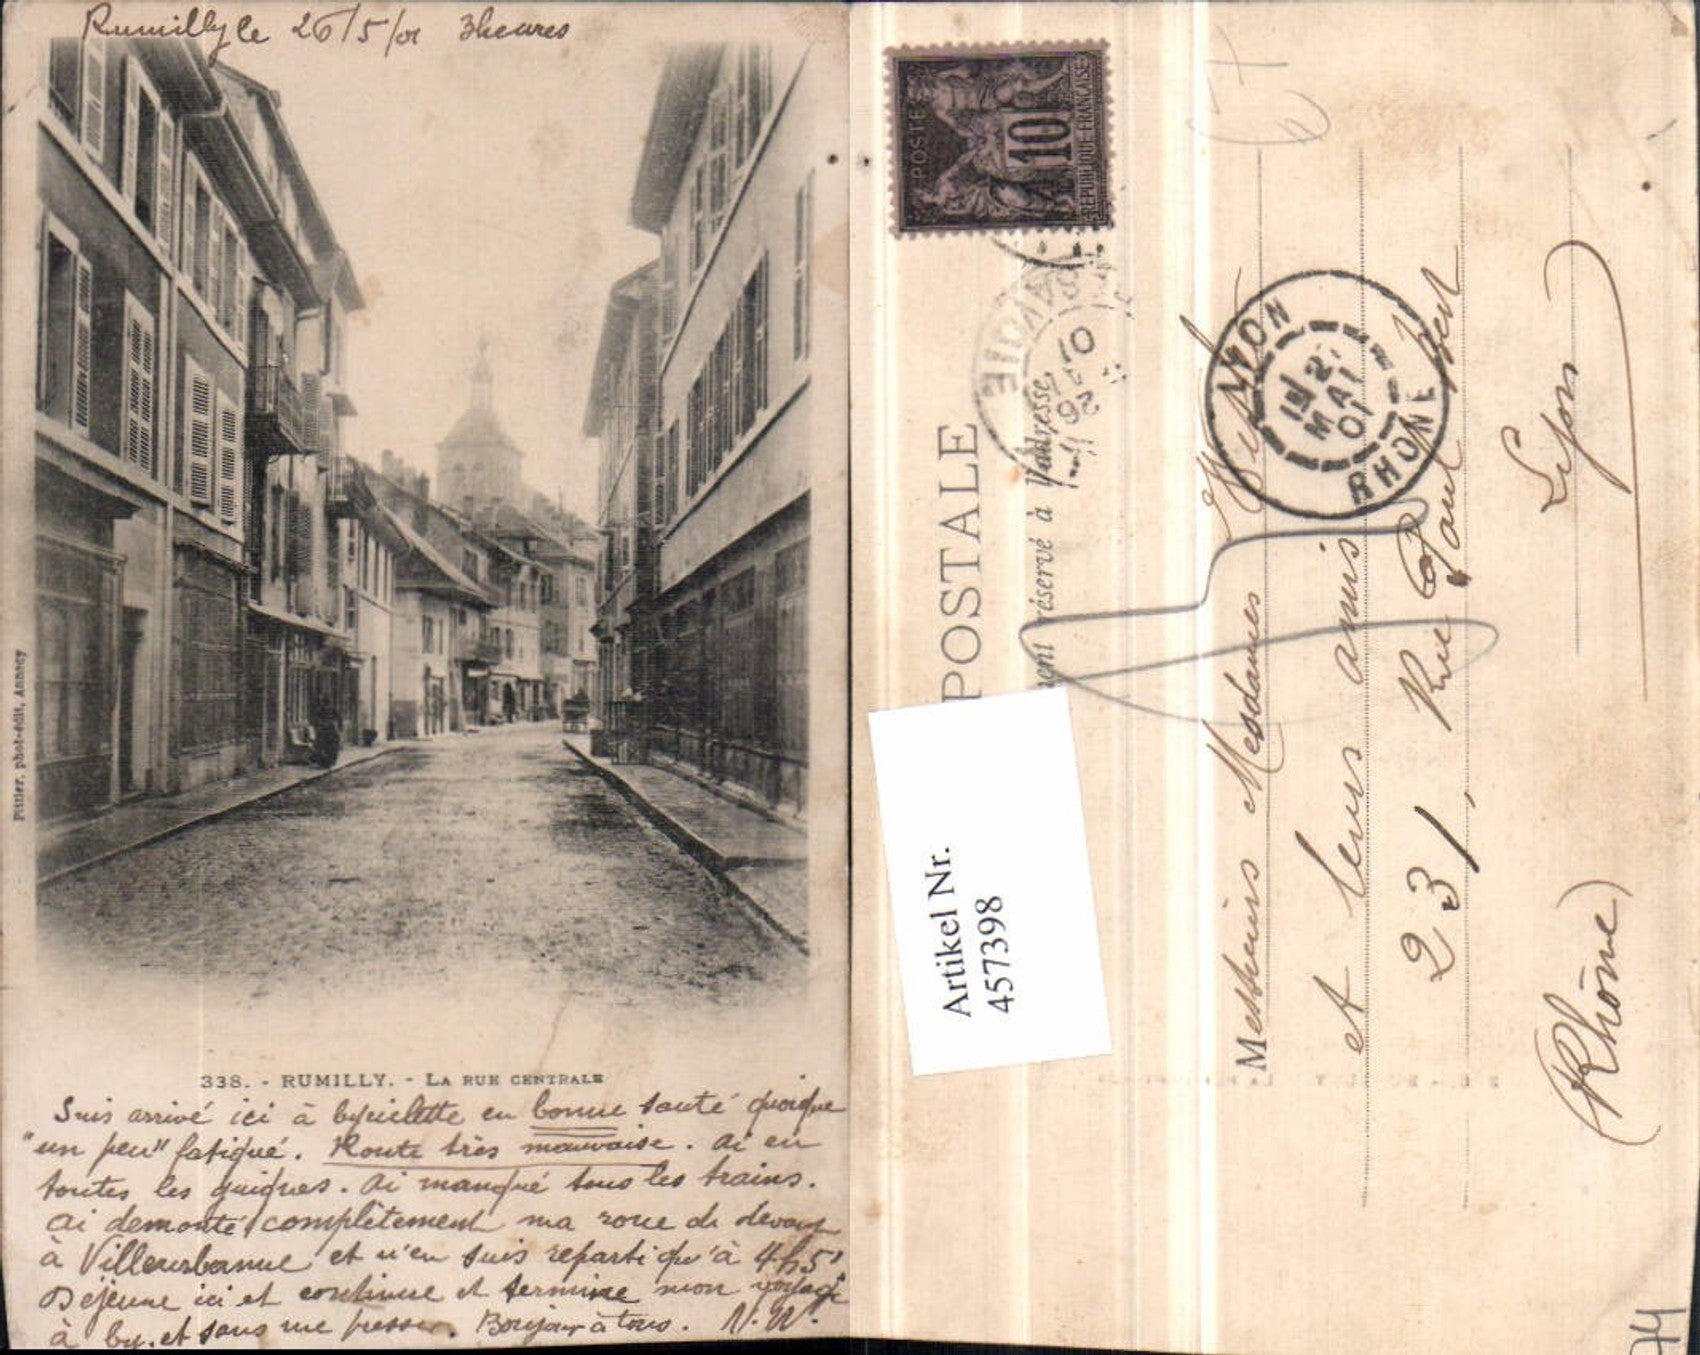 Rumilly le 26/5/01 3heures
Pittier, phot-édit, Annecy
338. - RUMILLY. - LA RUE CENTRALE
Suis arrivé ici à bycielette en bonne santé quoique
"un peu" fatigué. Route très mauvaise. Ai eu
toutes les guignes. Ai manqué tous les trains.
Ai démonté complètement ma roue de devant
à Villeurbanne et n'en suis reparti qu'à 4h5'
Déjeune ici et continue et termine mon voyage
à by. et sans me presser. Bonjour à tous. N.W.
POSTE
10
REPUBLIQUE FRANÇAISE
POSTALE
réservé à l'adresse
LYON
MAI
01
RHONE
Messieurs Mesdames
et leurs amis
231, Rue Paul Bert
Lyon
(Rhône)
Artikel Nr.
457398